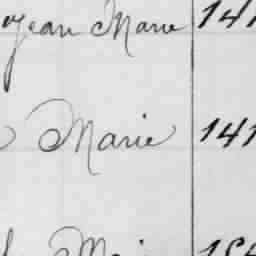 Jean Marie 141
Marie 141